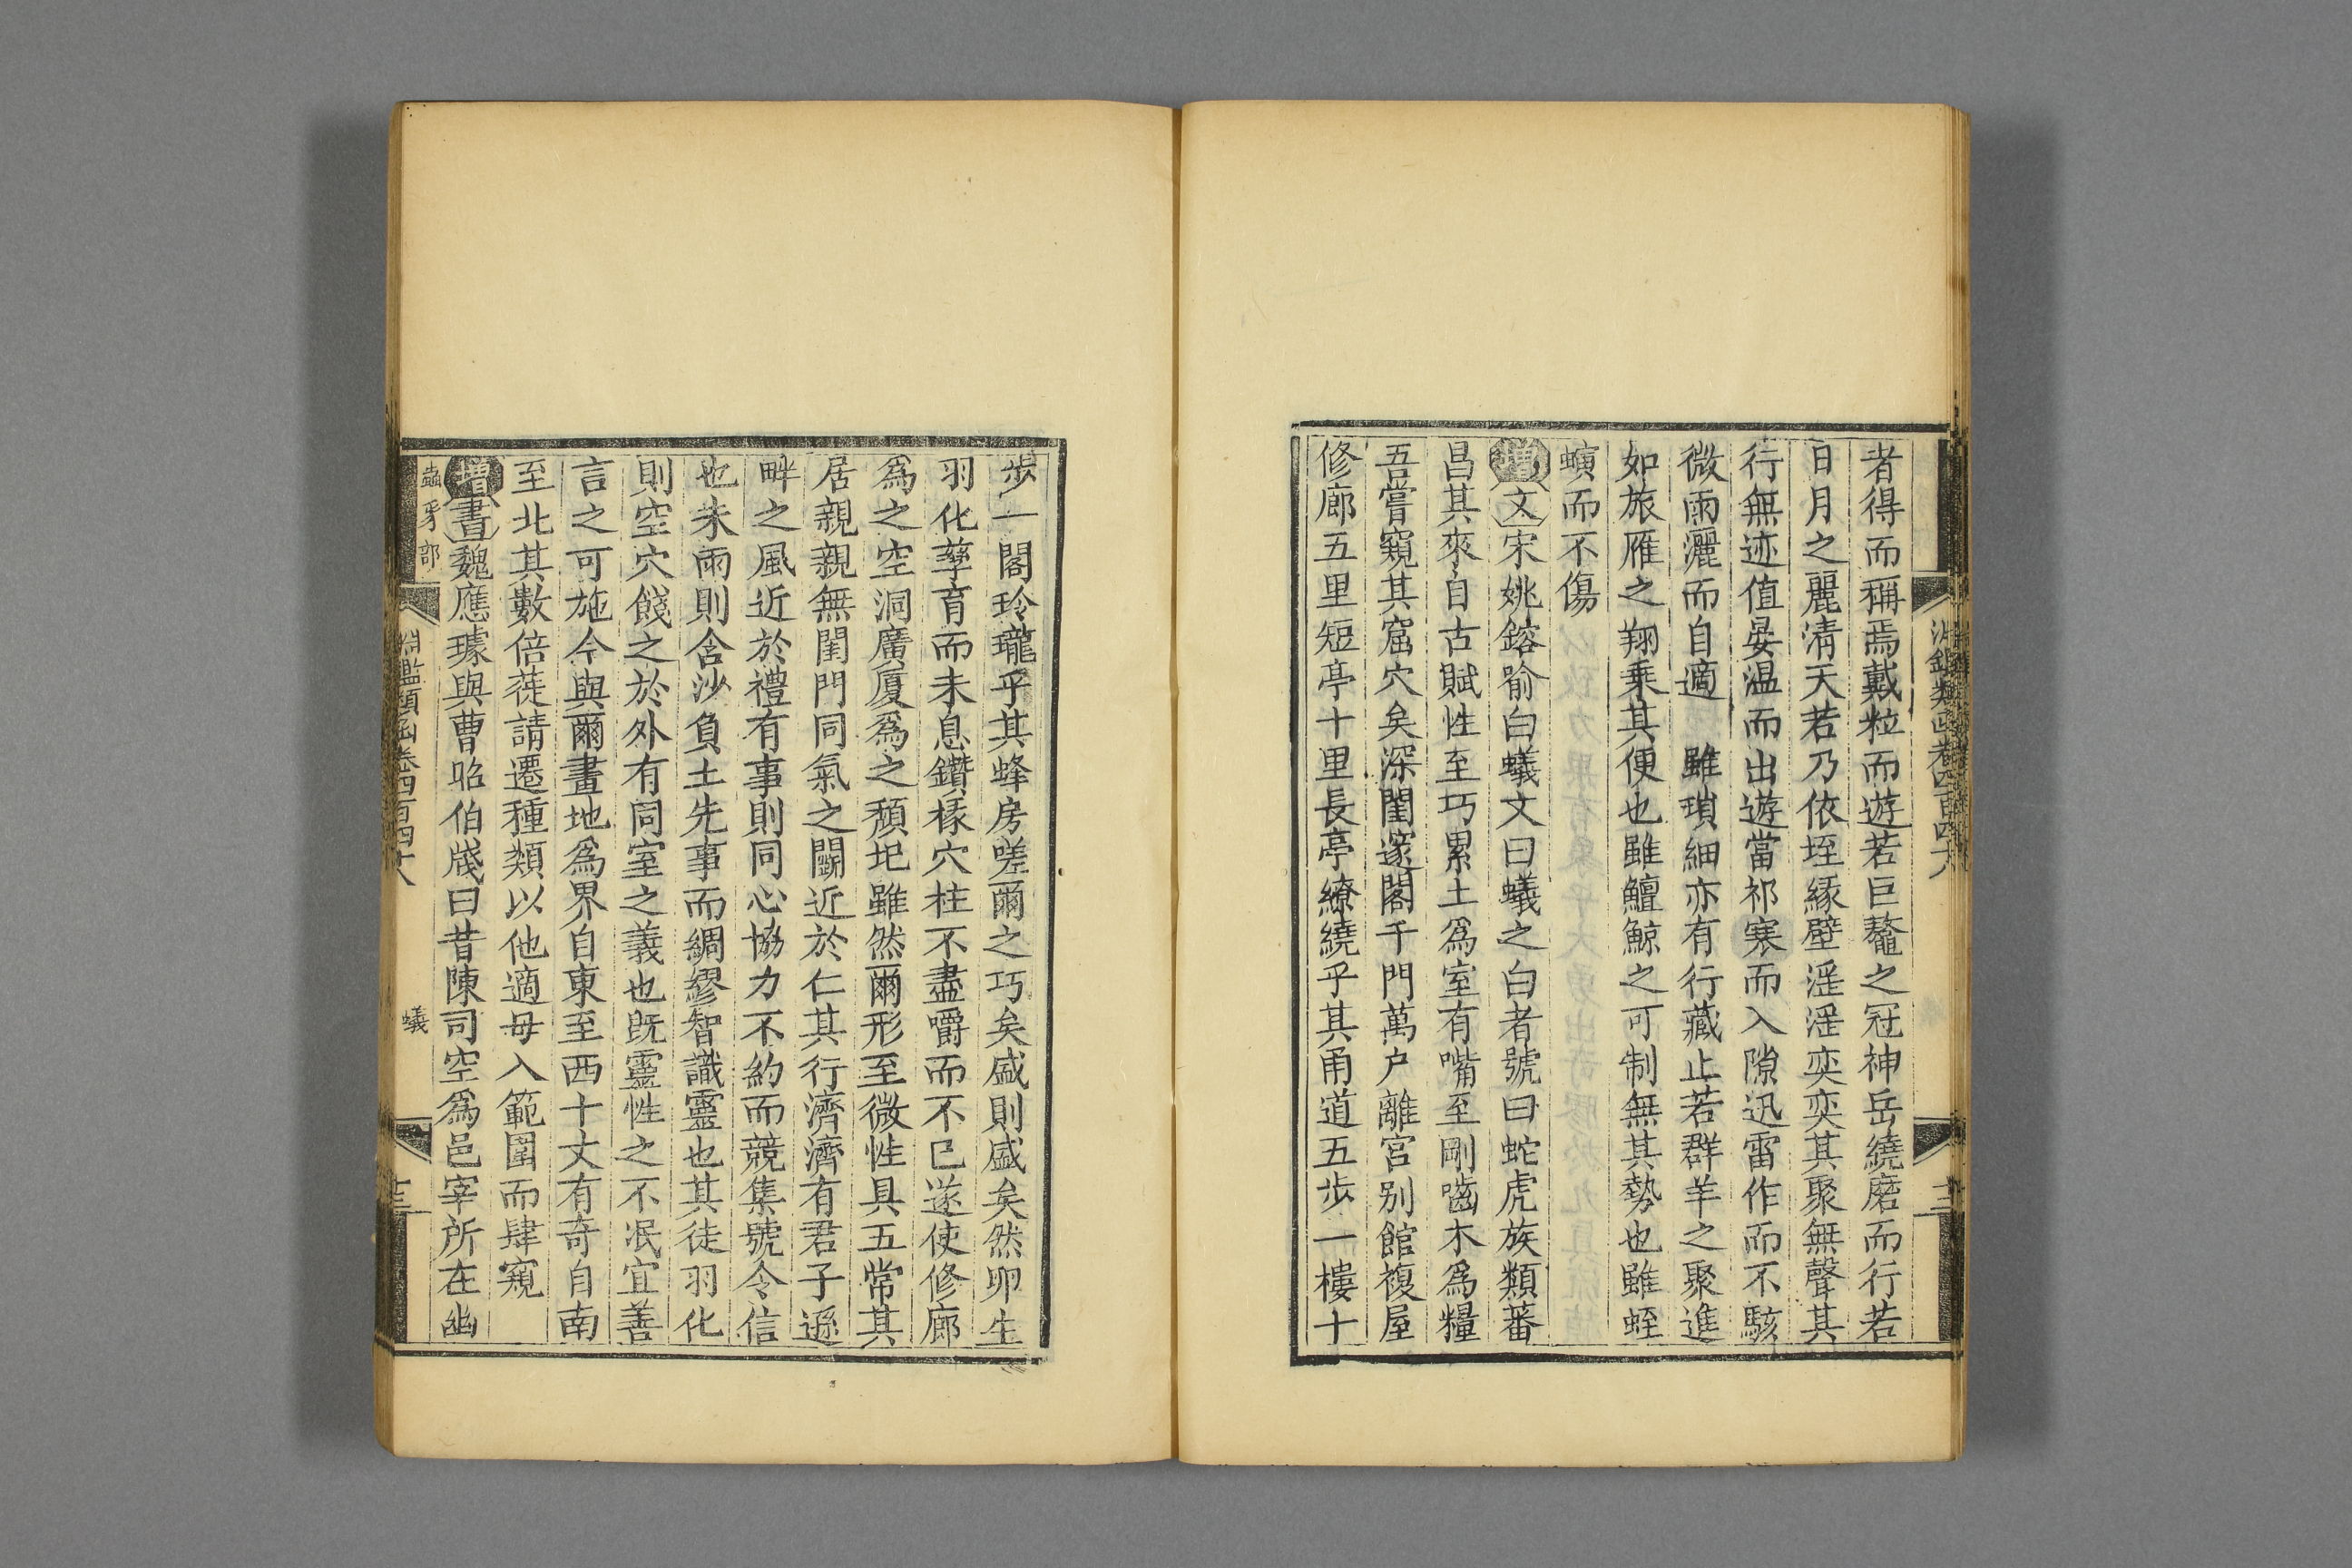 者得而稱焉戴粒而遊若巨鼇之冠神岳繞磨而行若
日月之麗清天若乃依垤緣壁滛滛奕奕其聚無聲其
行無迹值晏温而出遊當祁寒而入隙迅雷作而不駭
微雨灑而自適 雖瑣細亦有行藏止若群羊之聚進
如旅雁之翔乗其便也雖鱣鯨之可制無其勢也雖蛭
螾而不傷
增文宋姚鎔喻白蟻文曰蟻之白者號曰蛇虎族類蕃
昌其來自古賦性至巧累土為室有嘴至剛嚙木為糧
吾嘗窺其窟穴矣深閨邃閣千門萬户離宮别館複屋
修廊五里短亭十里長亭繚繞乎其甬道五歩一樓十
歩一閣玲瓏乎其蜂房嗟爾之巧矣盛則盛矣然卵生
羽化孳育而未息鑽椽穴柱不盡嚼而不已遂使修廊
為之空洞廣厦為之頽圮雖然爾形至微性具五常其
居親親無閨門同氣之鬭近於仁其行濟濟有君子遜
畔之風近於禮有事則同心恊力不約而競集號令信
也未雨則含沙負土先事而綢繆智識靈也其徒羽化
則空穴餞之於外有同室之義也既靈性之不泯宜善
言之可施今與爾畫地為界自東至西十丈有奇自南
至北其數倍蓰請遷種類以他適毋入範圍而肆窺
增書魏應璩與曹昭伯牋曰昔陳司空為邑宰所在幽
蟲豸部
淵鑑類函卷四百四十八
蟻
十三